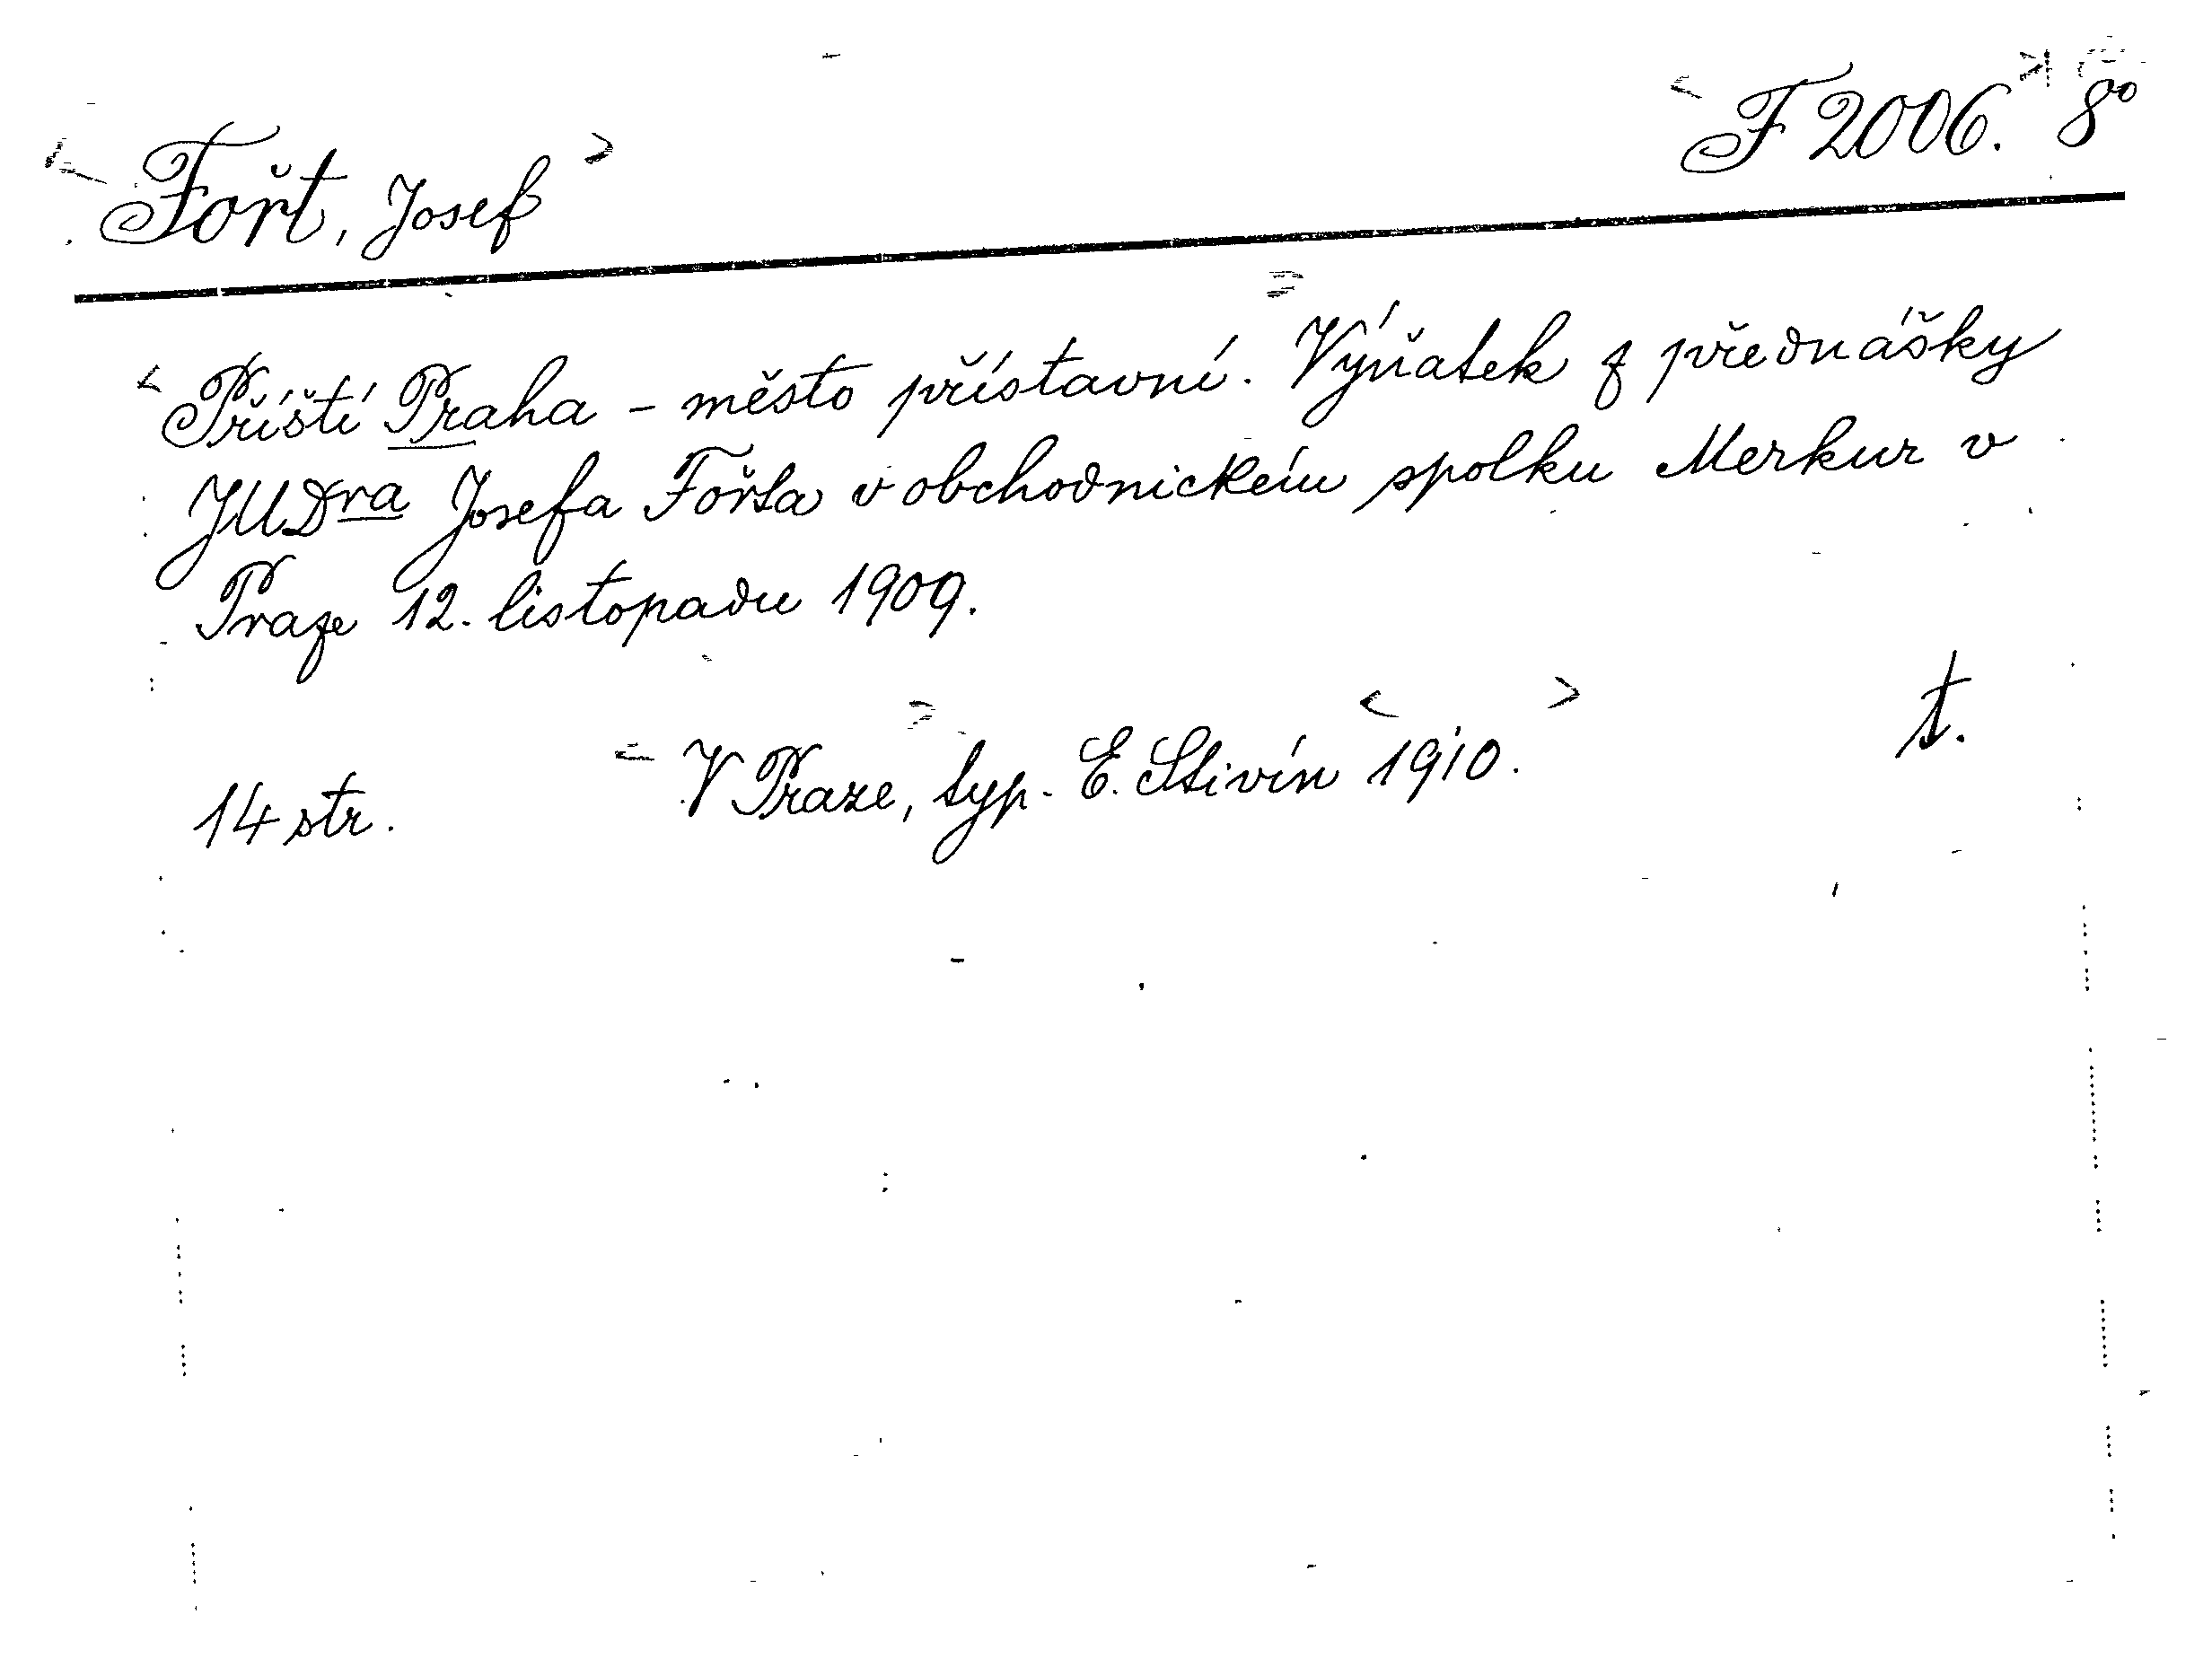 <Fořt, Josef> <F 2006.> 8°
<Příští Praha - město přístavní.> Výňatek z přednášky
JUDra Josefa Fořta v obchodnickém spolku Merkur v
Praze 12. listopadu 1909.
t.
14 str. <V Praze,> typ. E. Stivín <1910.>